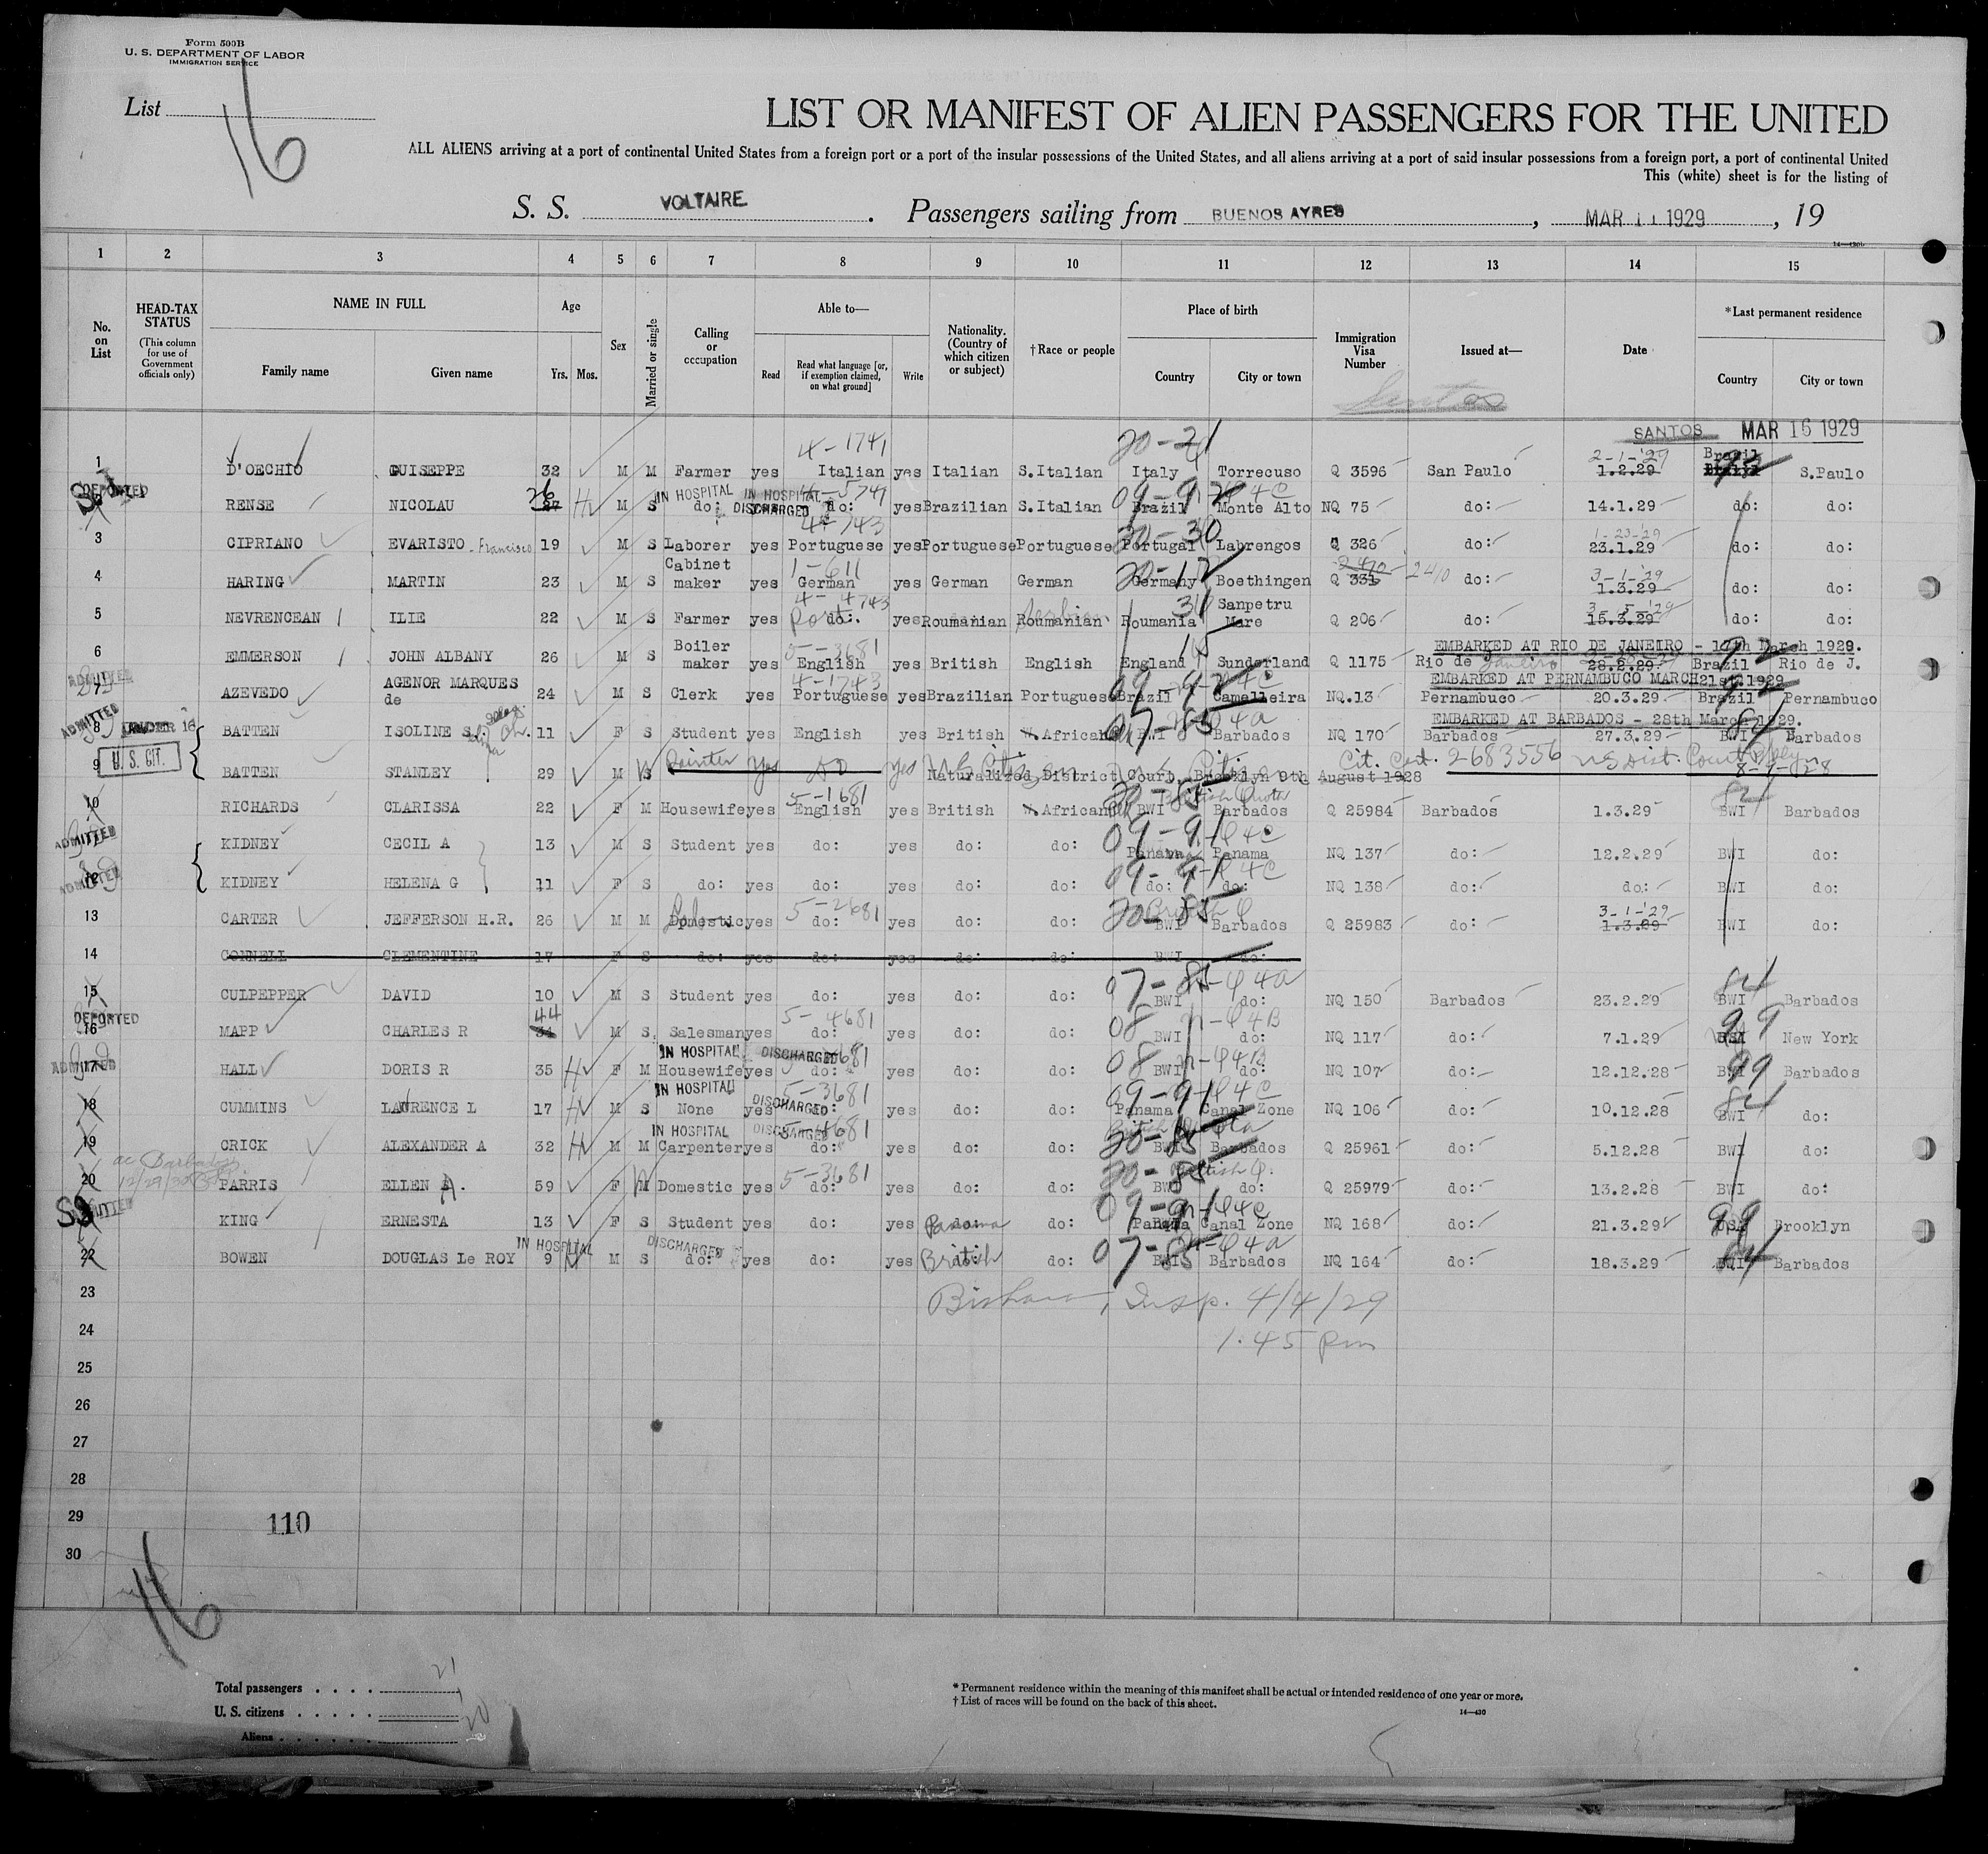 Form 500B
U. S. DEPARTMENT OF LABOR
IMMIGRATION SERVICE
List
16
LIST OR MANIFEST OF ALIEN PASSENGERS FOR THE UNITED
ALL ALIENS arriving at a port of continental United States from a foreign port or a port of the insular possessions of the United States, and all aliens arriving at a port of said insular possessions from a foreign port, a port of continental United
This (white) sheet is for the listing of
S. S. VOLTAIRE. Passengers sailing from BUENOS AYRES, MAR 11 1929, 19
1 2 3 4 5 6 7 8 9 10 11 12 13 14 15
No. on List
HEAD-TAX STATUS (This column for use of Government officials only)
NAME IN FULL Family name Given name
Age Yrs. Mos.
Sex
Married or single
Calling or occupation
Able to— Read Read what language [or, if exemption claimed, on what ground] Write
Nationality. (Country of which citizen or subject)
†Race or people
Place of birth Country City or town
Immigration Visa Number
Issued at—
Date
*Last permanent residence Country City or town
Santos
SANTOS MAR 16 1929
4-1741 20-21 2-1-'29 Brazil
1 D'OECHIO GUISEPPE 32 M M Farmer yes Italian yes Italian S.Italian Italy Torrecuso Q 3596 San Paulo 1.2.29 Brazyl S.Paulo
DEPORTED 26 IN HOSPITAL IN HOSPITAL DISCHARGED
2 RENSE NICOLAU 27 M S do: yes do: yes Brazilian S.Italian Brazil Monte Alto NQ 75 do: 14.1.29 do: do:
4-743 20-30 1-23-'29
3 CIPRIANO EVARISTO Francisco 19 M S Laborer yes Portuguese yes Portuguese Portuguese Portugal Labrengos Q 326 do: 23.1.29 do: do:
1-611 20-12 2410 3-1-'29
4 HARING MARTIN 23 M S Cabinet maker yes German yes German German Germany Boethingen Q 331 2410 do: 1.3.29 do: do:
4-4743 31 3-5-'29
5 NEVRENCEAN ILIE 22 M S Farmer yes Port. do: yes Roumanian Roumanian Roumania Sanpetru Mare Q 206 do: 15.3.29 do: do:
EMBARKED AT RIO DE JANEIRO - March 1929.
5-3681 15
6 EMMERSON JOHN ALBANY 26 M S Boiler maker yes English yes British English England Sunderland Q 1175 Rio de Janeiro 28.2.29 Brazil Rio de J.
EMBARKED AT PERNAMBUCO MARCH 21st. 1929
ADMITTED 4-1743
7 AZEVEDO AGENOR MARQUES de 24 M S Clerk yes Portuguese yes Brazilian Portuguese Brazil Camelleira NQ.13 Pernambuco 20.3.29 Brazil Pernambuco
EMBARKED AT BARBADOS - 28th March 1929.
ADMITTED UNDER 16
8 BATTEN ISOLINE S. 11 F S Student yes English yes British W.African BWI Barbados NQ 170 Barbados 27.3.29 BWI Barbados
U. S. CIT. Painter yes do yes U S Citizen Cit. Cert. 2683556 US Dist. Court Bklyn
9 BATTEN STANLEY 29 M S Naturalized District Court, Brooklyn 9th August 1928 8-9-28
5-1681 20-85 British Quota
10 RICHARDS CLARISSA 22 F M Housewife yes English yes British W.African BWI Barbados Q 25984 Barbados 1.3.29 BWI Barbados
ADMITTED 09-91 Q4C
KIDNEY CECIL A 13 M S Student yes do: yes do: do: Panama Panama NQ 137 do: 12.2.29 BWI do:
ADMITTED 09-91 Q4C
12 KIDNEY HELENA G 11 F S do: yes do: yes do: do: do: do: NQ 138 do: do: BWI do:
5-2681 20-85 British Q 3-1-'29
13 CARTER JEFFERSON H.R. 26 M M Domestic yes do: yes do: do: BWI Barbados Q 25983 do: 1.3.29 BWI do:
14 CONNELL CLEMENTINE 17 F S do: yes do: yes do: do: BWI do:
07-85 Q4a 84
15 CULPEPPER DAVID 10 M S Student yes do: yes do: do: BWI do: NQ 150 Barbados 23.2.29 BWI Barbados
DEPORTED 44 5-4681 08 n-Q4B 99
16 MAPP CHARLES R 34 M S Salesman yes do: yes do: do: BWI do: NQ 117 do: 7.1.29 USA New York
ADMITTED IN HOSPITAL DISCHARGED 08 n-Q4B 99
17 HALL DORIS R 35 F M Housewife yes do: yes do: do: BWI do: NQ 107 do: 12.12.28 BWI Barbados
IN HOSPITAL DISCHARGED 5-3681 09-91 Q4C 84
18 CUMMINS LAWRENCE L 17 M S None yes do: yes do: do: Panama Canal Zone NQ 106 do: 10.12.28 BWI do:
IN HOSPITAL DISCHARGED 5-4681 British Quota 20-85
19 CRICK ALEXANDER A 32 M M Carpenter yes do: yes do: do: BWI Barbados Q 25961 do: 5.12.28 BWI do:
5-3681 20-85 British Q.
20 PARRIS ELLEN A. 59 F M Domestic yes do: yes do: do: BWI do: Q 25979 do: 13.2.28 BWI do:
ADMITTED 09-91 Q4C 99
KING ERNESTA 13 F S Student yes do: yes Panama do: Panama Canal Zone NQ 168 do: 21.3.29 USA Brooklyn
IN HOSPITAL DISCHARGED 07-85 n-Q4a 84
22 BOWEN DOUGLAS Le ROY 9 M S do: yes do: yes British do: BWI Barbados NQ 164 do: 18.3.29 BWI Barbados
23 Insp. 4/4/29
24 1.45 pm
25
26
27
28
29 110
30
16
Total passengers . . . . 21
U. S. citizens . . . . . 1
Aliens . . . . . . 20
* Permanent residence within the meaning of this manifest shall be actual or intended residence of one year or more.
† List of races will be found on the back of this sheet.
14—430